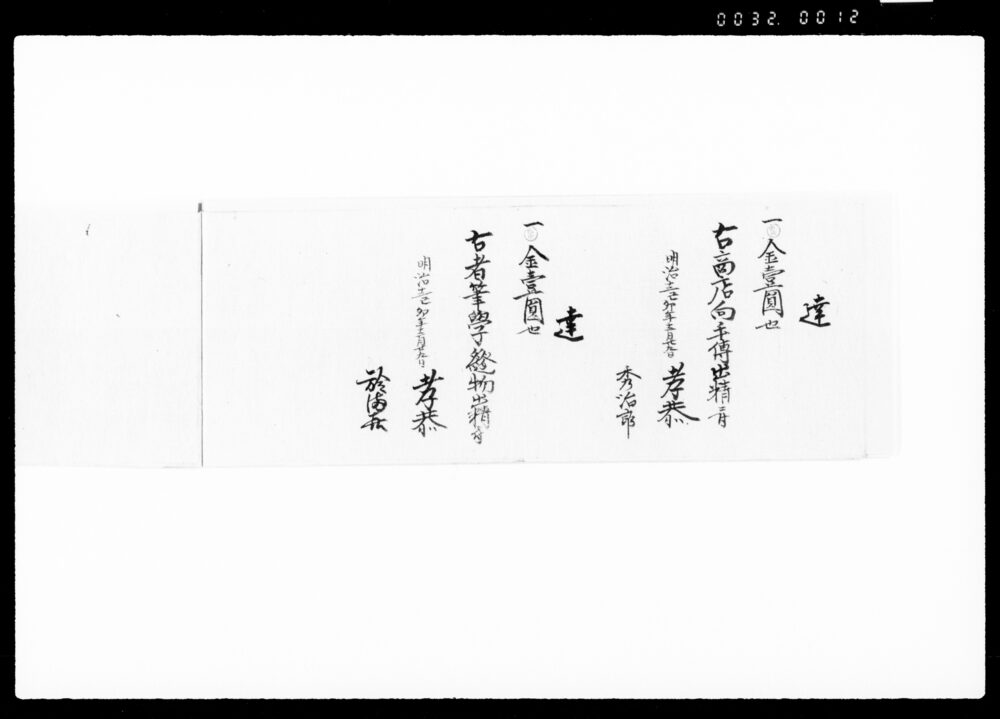 0032. 0012
達
一金壹圓也
右商店向手傳出精ニ付
明治十二己卯年十二月廿九日
孝恭
秀治郎
達
一金壹圓也
右者筆學縫物出精ニ付
明治十二己卯年十二月廿九日
孝恭